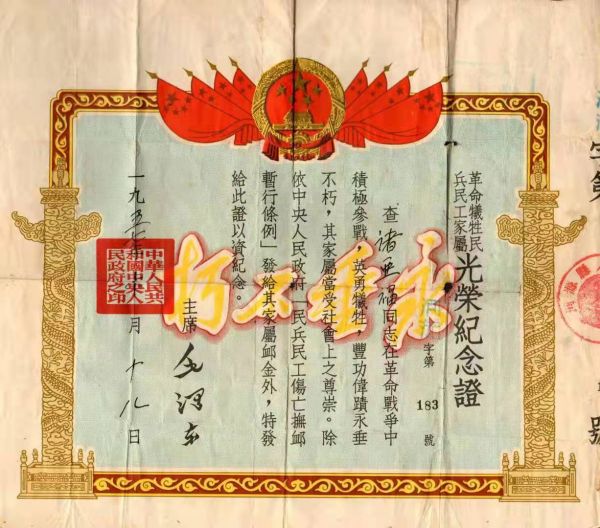 字第
號
革命犧牲民
兵民工家屬
光榮紀念證
字第 183 號
查 同志在革命戰爭中
積極參戰，英勇犧牲，豐功偉蹟永垂
不朽，其家屬當受社會上之尊崇。除
依中央人民政府「民兵民工傷亡撫卹
暫行條例」發給其家屬卹金外，特發
給此證以資紀念。
永垂不朽
主席 毛澤東
一九五 年 月十八日
中華人民共
和國中央人
民政府之印